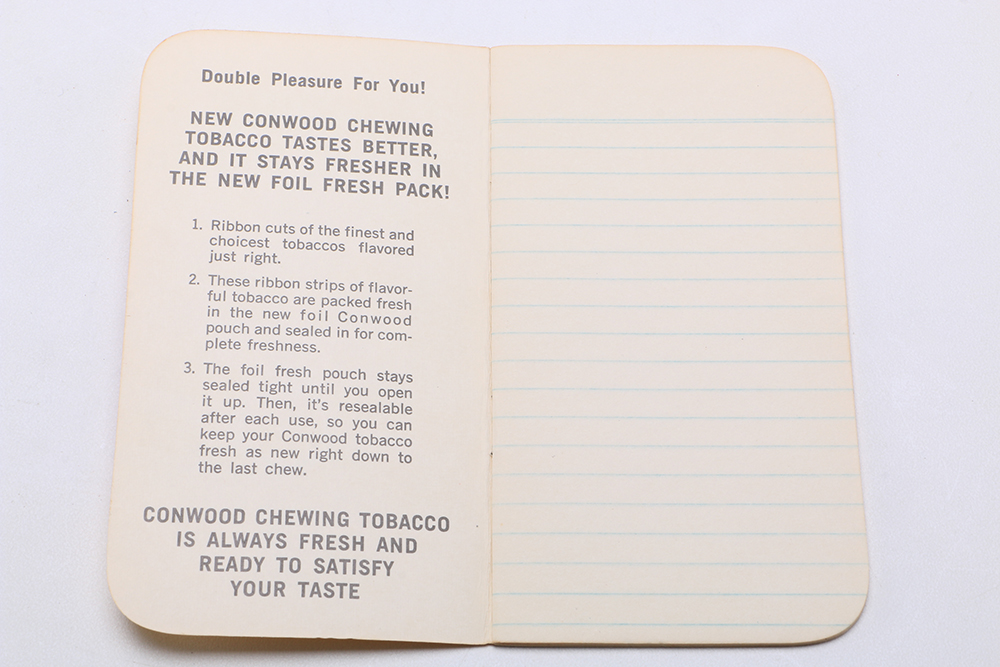 Double Pleasure For You!
NEW CONWOOD CHEWING
TOBACCO TASTES BETTER,
AND IT STAYS FRESHER IN
THE NEW FOIL FRESH PACK!
1. Ribbon cuts of the finest and
choicest tobaccos flavored
just right.
2. These ribbon strips of flavor-
ful tobacco are packed fresh
in the new foil Conwood
pouch and sealed in for com-
plete freshness.
3. The foil fresh pouch stays
sealed tight until you open
it up. Then, it's resealable
after each use, so you can
keep your Conwood tobacco
fresh as new right down to
the last chew.
CONWOOD CHEWING TOBACCO
IS ALWAYS FRESH AND
READY TO SATISFY
YOUR TASTE